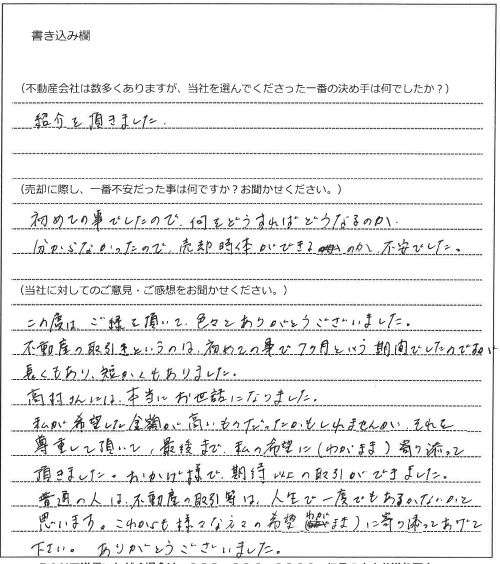 書き込み欄
(不動産会社は数多くありますが、当社を選んでくださった一番の決め手は何でしたか?)
紹介を頂きました.
(売却に際し、一番不安だった事は何ですか?お聞かせください。)
初めての事でしたので、何をどうすればどうなるのか、
分からなかったので、売却時体ができるのか、不安でした。
(当社に対してのご意見・ご感想をお聞かせください。)
この度は、ご縁を頂いて、色々とありがとうございました。
不動産の取引きというのは、初めての事で7ヶ月という期間でしたのですが
長くもあり、短かくもありました。
高村さんには、本当にお世話になりました。
私が希望した金額が高いものだったかもしれませんが、それを
尊重して頂いて、最後まで、私の希望に(わがまま)寄り添って
頂きました。おかげ様で、期待以上の取引ができました。
普通の人は、不動産の取引等は、人生で一度でもあるかないかと
思います。これからも様々な方々の希望(わがまま)に寄り添ってあげて
下さい。ありがとうございました。